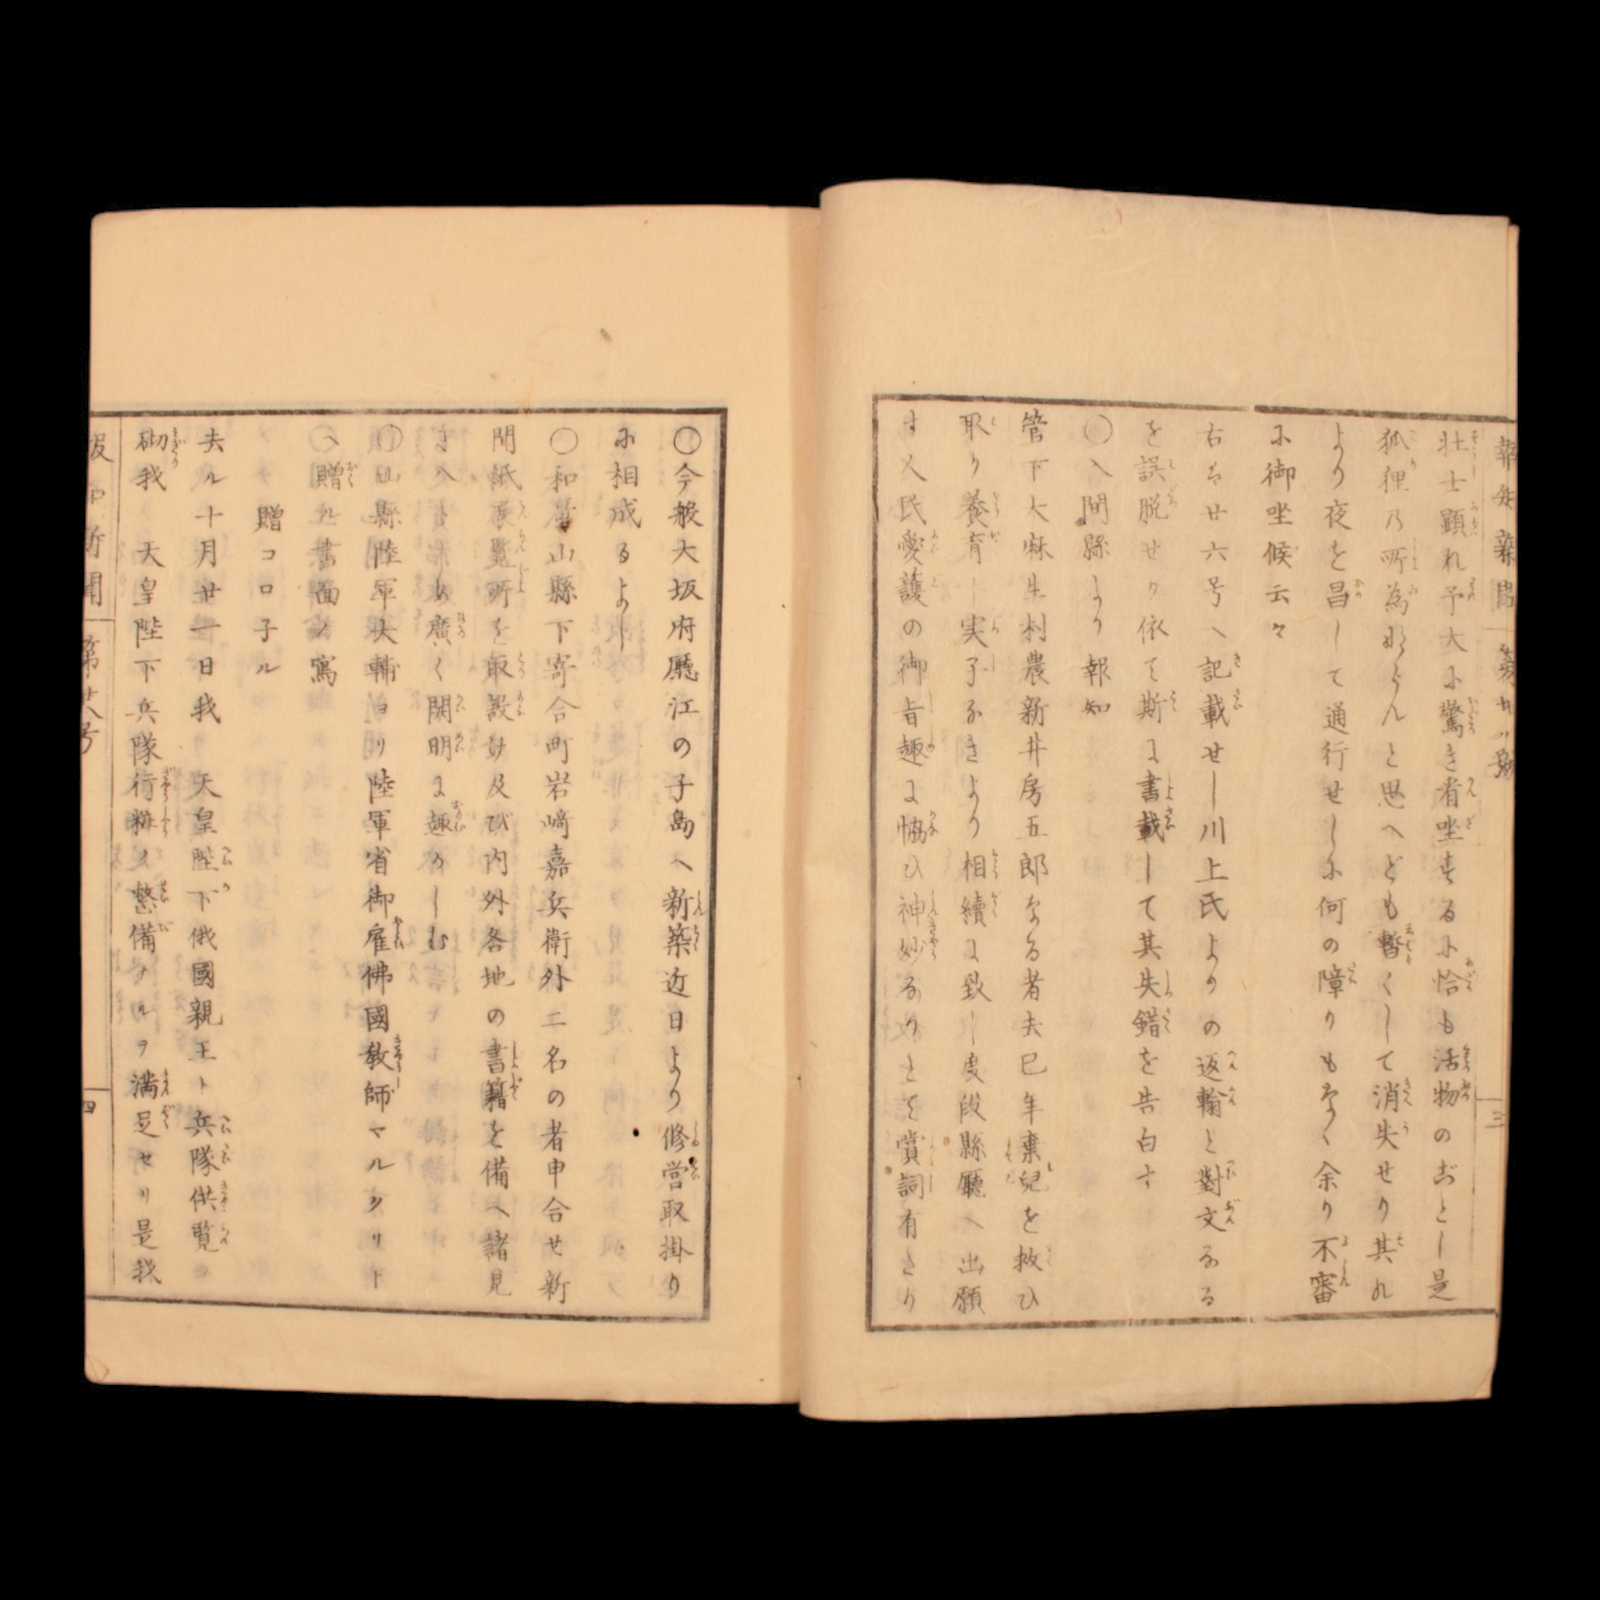 報知新聞 第廿八號 三
壮士顕れ予大に驚き看坐するに恰も活物のごとし是
狐狸乃所為ならんと思へども暫くして消失せり其れ
より夜を冒して通行せしに何の障りもなく余り不審
に御坐候云々
右は廿六号へ記載せし川上氏よりの返翰と對文なる
を誤脱せり依て斯に書載して其失錯を告白す
〇入間縣より報知
管下大麻生村農新井房五郎なる者去巳年棄児を救ひ
取り養育し実子なきより相續に致し度段縣廳へ出願
す人民愛護の御旨趣に恊ひ神妙なりとて賞詞有たり
〇今般大坂府廳江の子島へ新築近日より修営取掛り
に相成るよし
〇和歌山縣下寄合町岩﨑嘉兵衛外二名の者申合せ新
聞紙展覧所を取設け及び内外各地の書籍を備へ諸見
廣く開明に趣かしむ
〇山縣陸軍大輔ヨリ陸軍省御雇佛國教師マルクリー
ヘ贈ル書面ノ寫
贈コロ子ル
去ル十月廿一日我 天皇陛下俄國親王ト兵隊供覧ノ
砌我 天皇陛下兵隊行粧ノ整備ナルヲ満足セリ是我
報知新聞 第廿八号 四